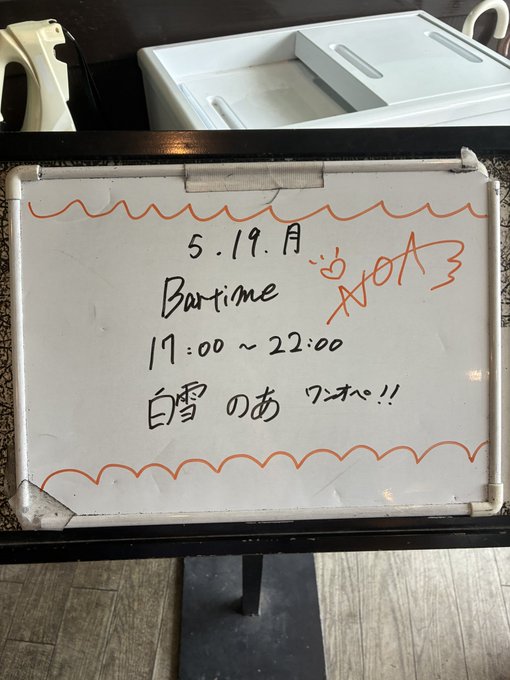 5.19.月
Bartime
NOA
17:00～22:00
白雪 のあ ワンオペ!!